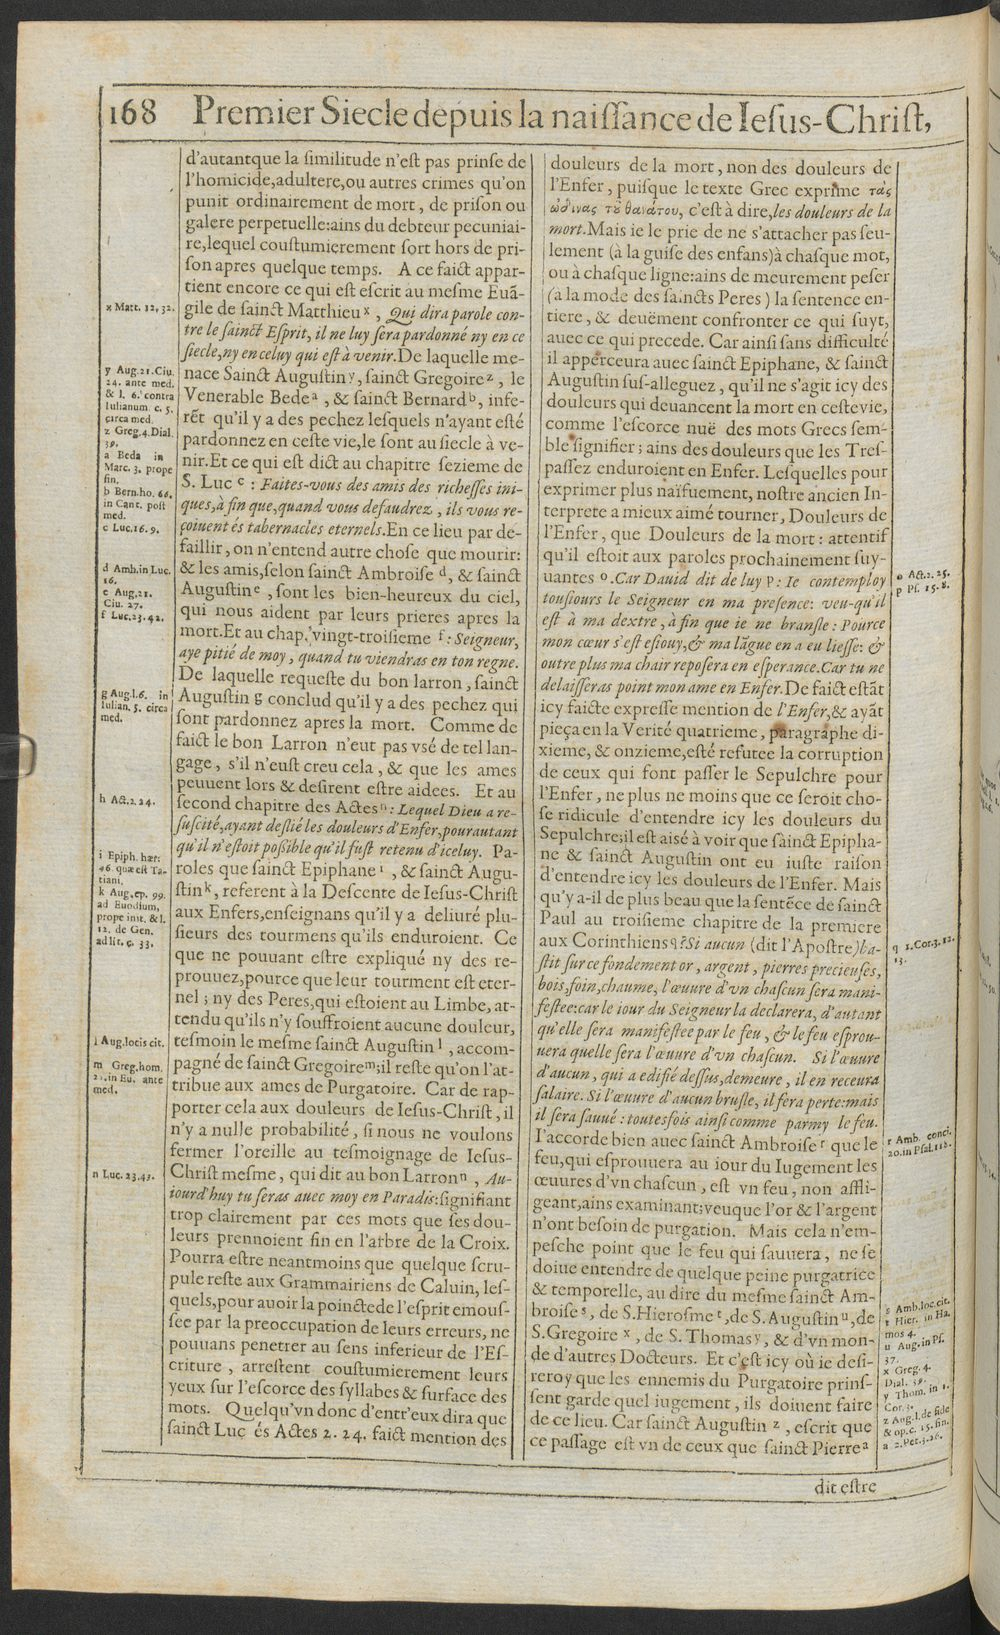 168 Premier Siecle depuis la naiſſance de Ieſus-Chriſt,
d'autantque la ſimilitude n'eſt pas prinſe de
l'homicide,adultere,ou autres crimes qu'on
punit ordinairement de mort, de priſon ou
galere perpetuelle:ains du debteur pecuniai-
re,lequel couſtumierement ſort hors de pri-
ſon apres quelque temps. A ce faict appar-
tient encore ce qui eſt eſcrit au meſme Euã-
gile de ſainct Matthieu x, Qui dira parole con-
tre le ſainct Eſprit, il ne luy ſera pardonné ny en ce
ſiecle,ny en celuy qui eſt à venir.De laquelle me-
nace Sainct Auguſtin y, ſainct Gregoire z, le
Venerable Bede a, & ſainct Bernard b, infe-
rẽt qu'il y a des pechez leſquels n'ayant eſté
pardonnez en ceſte vie,le ſont au ſiecle à ve-
nir.Et ce qui eſt dict au chapitre ſezieme de
S. Luc c : Faites-vous des amis des richeſſes ini-
ques,à fin que,quand vous defaudrez, ils vous re-
çoiuent és tabernacles eternels.En ce lieu par de-
faillir, on n'entend autre choſe que mourir:
& les amis,ſelon ſainct Ambroiſe d, & ſainct
Auguſtin e, ſont les bien-heureux du ciel,
qui nous aident par leurs prieres apres la
mort.Et au chap. vingt-troiſieme f: Seigneur,
aye pitié de moy, quand tu viendras en ton regne.
De laquelle requeſte du bon larron, ſainct
Auguſtin g conclud qu'il y a des pechez qui
ſont pardonnez apres la mort. Comme de
faict le bon Larron n'eut pas vsé de tel lan-
gage, s'il n'euſt creu cela, & que les ames
peuuent lors & deſirent eſtre aidees. Et au
ſecond chapitre des Actes h: Lequel Dieu a re-
ſuſcité,ayant deſlié les douleurs d'Enfer,pourautant
qu'il n'eſtoit poßible qu'il fuſt retenu d'iceluy. Pa-
roles que ſainct Epiphane i, & ſainct Augu-
ſtin k, referent à la Deſcente de Ieſus-Chriſt
aux Enfers,enſeignans qu'il y a deliuré plu-
ſieurs des tourmens qu'ils enduroient. Ce
que ne pouuant eſtre expliqué ny des re-
prouuez,pource que leur tourment eſt eter-
nel; ny des Peres,qui eſtoient au Limbe, at-
tendu qu'ils n'y ſouffroient aucune douleur,
teſmoin le meſme ſainct Auguſtin l, accom-
pagné de ſainct Gregoire m;il reſte qu'on l'at-
tribue aux ames de Purgatoire. Car de rap-
porter cela aux douleurs de Ieſus-Chriſt, il
n'y a nulle probabilité, ſi nous ne voulons
fermer l'oreille au teſmoignage de Ieſus-
Chriſt meſme, qui dit au bon Larron n, Au-
iourd'huy tu ſeras auec moy en Paradis:ſignifiant
trop clairement par ces mots que ſes dou-
leurs prennoient fin en l'arbre de la Croix.
Pourra eſtre neantmoins que quelque ſcru-
pule reſte aux Grammairiens de Caluin, leſ-
quels,pour auoir la poincte de l'eſprit emouſ-
ſee par la preoccupation de leurs erreurs, ne
pouuans penetrer au ſens inferieur de l'Eſ-
criture, arreſtent couſtumierement leurs
yeux ſur l'eſcorce des ſyllabes & ſurface des
mots. Quelqu'vn donc d'entr'eux dira que
ſainct Luc és Actes 2. 24. faict mention des
x Matt. 12, 32.
y Aug.21.Ciu.
24. ante med.
& l. 6. contra
Iulianum c. 5.
circa med.
z Greg.4.Dial.
39.
a Beda in
Marc. 3. prope
fin.
b Bern.ho. 66.
in Cant. poſt
med.
c Luc.16.9.
d Amb.in Luc.
16.
e Aug.21.
Ciu. 27.
f Luc.23.42.
g Aug.l.6. in
Iulian. 5. circa
med.
h Act.2.24.
i Epiph. hær:
46. quæ eſt Ta-
tiani.
k Aug.ep. 99.
ad Euodium,
prope init. & l.
12. de Gen.
ad lit. c. 33.
l Aug.locis cit.
m Greg.hom.
in Eu. ante
med.
n Luc. 23.43.
douleurs de la mort, non des douleurs de
l'Enfer, puiſque le texte Grec exprime τὰς
ὠδινας τȣ̃ θανάτου, c'eſt à dire,les douleurs de la
mort.Mais ie le prie de ne s'attacher pas ſeu-
lement (à la guiſe des enfans)à chaſque mot,
ou à chaſque ligne:ains de meurement peſer
(à la mode des ſaincts Peres) la ſentence en-
tiere, & deuëment confronter ce qui ſuyt,
auec ce qui precede. Car ainſi ſans difficulté
il apperceura auec ſainct Epiphane, & ſainct
Auguſtin ſuſ-alleguez, qu'il ne s'agit icy des
douleurs qui deuancent la mort en ceſte vie,
comme l'eſcorce nuë des mots Grecs ſem-
ble ſignifier; ains des douleurs que les Treſ-
paſſez enduroient en Enfer. Leſquelles pour
exprimer plus naïfuement, noſtre ancien In-
terprete a mieux aimé tourner, Douleurs de
l'Enfer, que Douleurs de la mort: attentif
qu'il eſtoit aux paroles prochainement ſuy-
uantes o.Car Dauid dit de luy p: Ie contemploy
touſiours le Seigneur en ma preſence: veu-qu'il
eſt à ma dextre, à fin que ie ne branſle: Pource
mon cœur s'eſt eſiouy,& ma lãgue en a eu lieſſe: &
outre plus ma chair repoſera en eſperance.Car tu ne
delaiſſeras point mon ame en Enfer.De faict eſtãt
icy faicte expreſſe mention de l'Enfer,& ayãt
pieça en la Verité quatrieme, paragraphe di-
xieme, & onzieme,eſté refutee la corruption
de ceux qui font paſſer le Sepulchre pour
l'Enfer, ne plus ne moins que ce ſeroit cho-
ſe ridicule d'entendre icy les douleurs du
Sepulchre;il eſt aisé à voir que ſainct Epipha-
ne & ſainct Auguſtin ont eu iuſte raiſon
d'entendre icy les douleurs de l'Enfer. Mais
qu'y a-il de plus beau que la ſentẽce de ſainct
Paul au troiſieme chapitre de la premiere
aux Corinthiens q?Si aucun (dit l'Apoſtre)ba-
ſtit ſur ce fondement or, argent, pierres precieuſes,
bois,foin,chaume, l'œuure d'vn chaſcun ſera mani-
feſtee:car le iour du Seigneur la declarera, d'autant
qu'elle ſera manifeſtee par le feu, & le feu eſprou-
uera quelle ſera l'œuure d'vn chaſcun. Si l'œuure
d'aucun, qui a edifié deſſus,demeure, il en receura
ſalaire. Si l'œuure d'aucun bruſle, il fera perte:mais
il ſera ſauué: toutesfois ainſi comme parmy le feu.
I'accorde bien auec ſainct Ambroiſe r que le
feu,qui eſprouuera au iour du Iugement les
œuures d'vn chaſcun, eſt vn feu, non affli-
geant,ains examinant;veuque l'or & l'argent
n'ont beſoin de purgation. Mais cela n'em-
peſche point que le feu qui ſauuera, ne ſe
doiue entendre de quelque peine purgatrice
& temporelle, au dire du meſme ſainct Am-
broiſe s, de S.Hieroſme t,de S.Auguſtin u,de
S.Gregoire x, de S.Thomas y, & d'vn mon-
de d'autres Docteurs. Et c'eſt icy où ie deſi-
reroy que les ennemis du Purgatoire prinſ-
ſent garde quel iugement, ils doiuent faire
de ce lieu. Car ſainct Auguſtin z, eſcrit que
ce paſſage eſt vn de ceux que ſainct Pierre a
o Act.2.25.
p Pſ. 15.8.
q 1.Cor.3.12.
13.
r Amb. conci.
20.in Pſal.118.
s Amb.loc.cit.
t Hier. in Ha.
mos 4.
u Aug.in Pſ.
37.
x Greg.4.
Dial. 39.
y Thom. in 1.
Cor.3.
z Aug.l.de fide
& op.c. 15.fin.
a 2.Pet.3.16.
dit eſtre